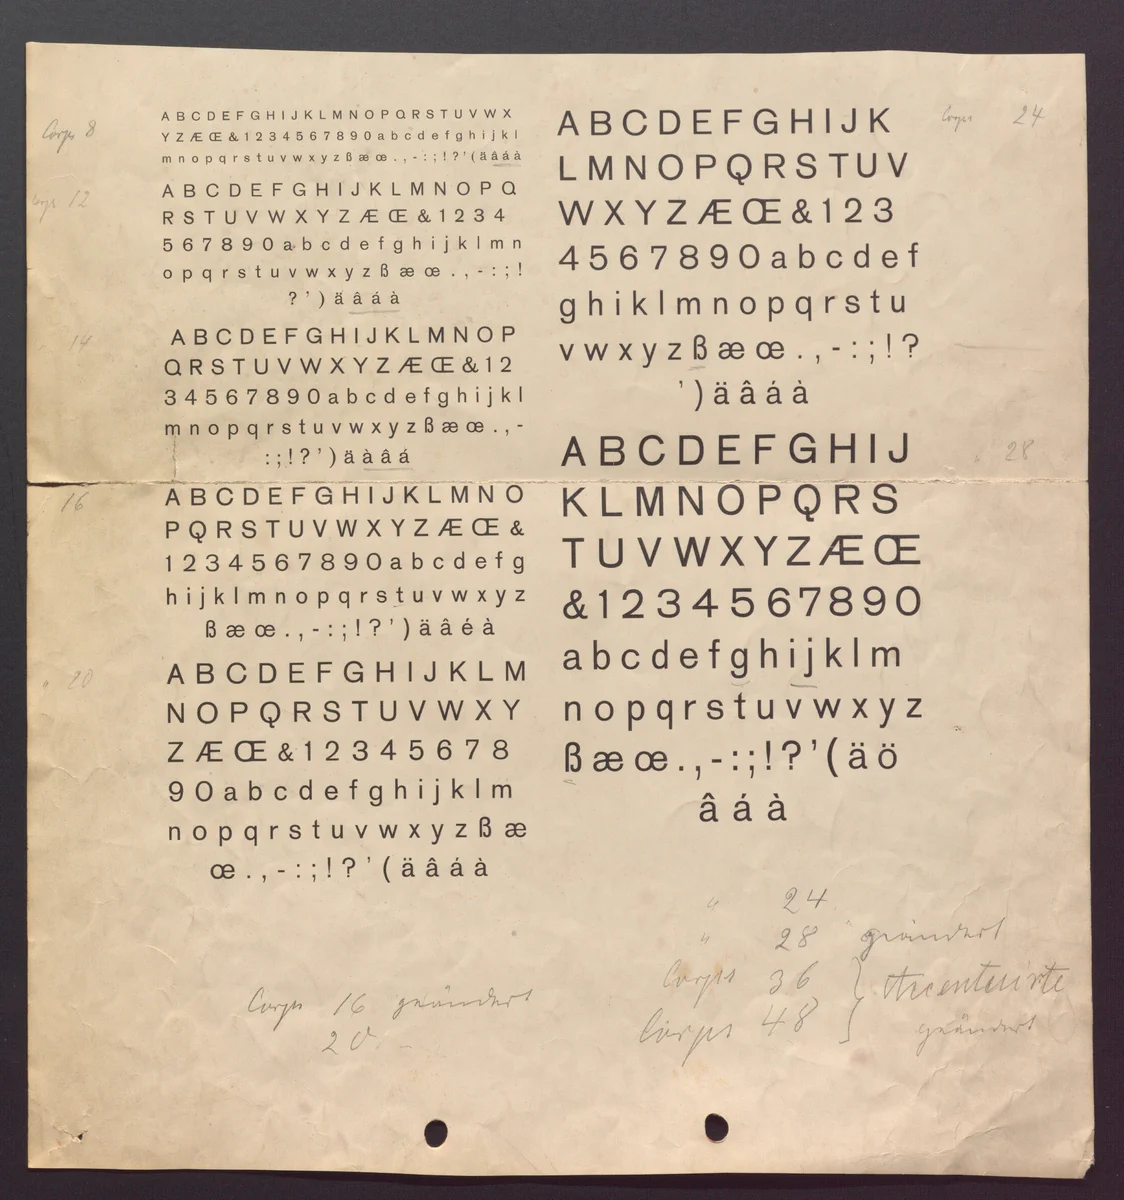 Corps 8
A B C D E F G H I J K L M N O P Q R S T U V W X
Y Z Æ Œ & 1 2 3 4 5 6 7 8 9 0 a b c d e f g h i j k l
m n o p q r s t u v w x y z ß æ œ . , - : ; ! ? ' ( ä â á à
Corps 12
A B C D E F G H I J K L M N O P Q
R S T U V W X Y Z Æ Œ & 1 2 3 4
5 6 7 8 9 0 a b c d e f g h i j k l m n
o p q r s t u v w x y z ß æ œ . , - : ; !
? ' ) ä â á à
" 14
A B C D E F G H I J K L M N O P
Q R S T U V W X Y Z Æ Œ & 1 2
3 4 5 6 7 8 9 0 a b c d e f g h i j k l
m n o p q r s t u v w x y z ß æ œ . , -
: ; ! ? ' ) ä à â á
16
A B C D E F G H I J K L M N O
P Q R S T U V W X Y Z Æ Œ &
1 2 3 4 5 6 7 8 9 0 a b c d e f g
h i j k l m n o p q r s t u v w x y z
ß æ œ . , - : ; ! ? ' ) ä â é à
" 20
A B C D E F G H I J K L M
N O P Q R S T U V W X Y
Z Æ Œ & 1 2 3 4 5 6 7 8
9 0 a b c d e f g h i j k l m
n o p q r s t u v w x y z ß æ
œ . , - : ; ! ? ' ( ä â á à
Corps 24
A B C D E F G H I J K
L M N O P Q R S T U V
W X Y Z Æ Œ & 1 2 3
4 5 6 7 8 9 0 a b c d e f
g h i k l m n o p q r s t u
v w x y z ß æ œ . , - : ; ! ?
' ) ä â á à
" 28
A B C D E F G H I J
K L M N O P Q R S
T U V W X Y Z Æ Œ
& 1 2 3 4 5 6 7 8 9 0
a b c d e f g h i j k l m
n o p q r s t u v w x y z
ß æ œ . , - : ; ! ? ' ( ä ö
â á à
Corps 16 geändert
20
" 24
" 28 geändert
Corps 36 } Accentuirte
Corps 48 } geändert